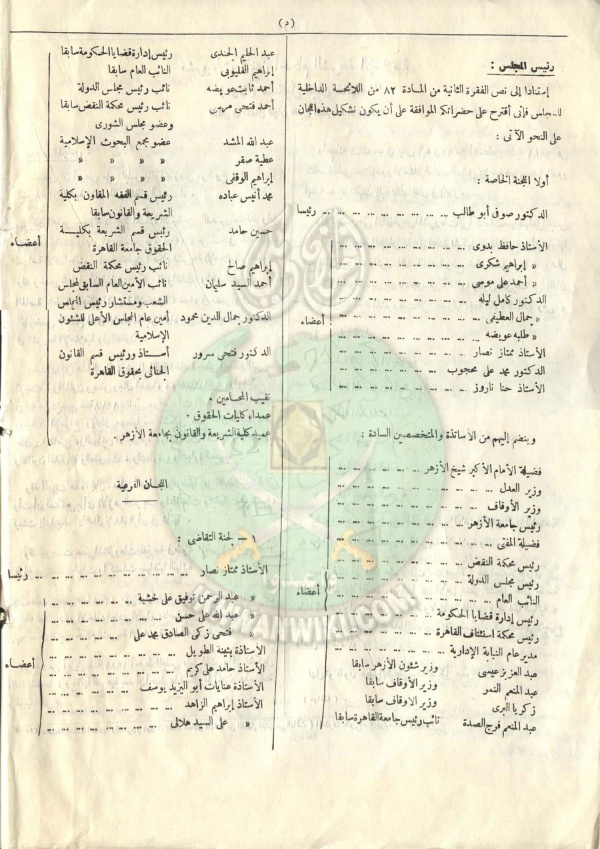 (د)
رئيس المجلس :
إستنادا إلى نص الفقرة الثانية من المادة ٨٢ من اللائحة الداخلية
للمجلس فإنى أقترح على حضراتكم الموافقة على أن يكون تشكيل هذه اللجان
على النحو الآتى :
أولا اللجنة الخاصة :
الدكتور صوفى أبو طالب ... ... ... ... ... ... رئيسا
الأستاذ حافظ بدوى ... ... ... ... ...
« إبراهيم شكرى ... ... ... ... ...
« أحمد على موسى ... ... ... ... ...
الدكتور كامل ليله ... ... ... ... ...
« جمال العطيفى ... ... ... ... ... أعضاء
« طلبه عويضه ... ... ... ... ...
الأستاذ ممتاز نصار ... ... ... ... ...
الدكتور محمد على محجوب ... ... ... ...
الأستاذ حنا ناروز ... ... ... ... ...
وينضم إليهم من الأساتذة والمتخصصين السادة :
فضيلة الأمام الأكبر شيخ الأزهر ... ... ... ...
وزير العدل ... ... ... ... ... ...
وزير الأوقاف ... ... ... ... ... ...
رئيس جامعة الأزهر ... ... ... ... ...
فضيلة المفتى ... ... ... ... ... ...
رئيس محكمة النقض ... ... ... ... ...
رئيس مجلس الدولة ... ... ... ... ...
النائب العام ... ... ... ... ... ... أعضاء
رئيس إدارة قضايا الحكومة ... ... ... ...
رئيس محكمة استئناف القاهرة ... ... ... ...
مدير عام النيابة الإدارية ... ... ... ...
عبد العزيز عيسى وزير شئون الأزهر سابقا
عبد المنعم النمر وزير الأوقاف سابقا
زكريا البرى وزير الاوقاف سابقا
عبد المنعم فرج الصدة نائب رئيس جامعة القاهرة سابقا
عبد الحليم الجندى رئيس إدارة قضايا الحكومة سابقا
إبراهيم القليوبى النائب العام سابقا
أحمد ثابت عويضه نائب رئيس مجلس الدولة
أحمد فتحى مرسى نائب رئيس محكمة النقض سابقا
وعضو مجلس الشورى
عبد الله المشد عضو مجمع البحوث الإسلامية
عطية صقر « « « «
إبراهيم الوقفى « « « «
محمد أنيس عباده رئيس قسم الفقه المقارن بكلية
الشريعة والقانون سابقا
حسين حامد رئيس قسم الشريعة بكليسة
الحقوق جامعة القاهرة أعضاء
إبراهيم صالح نائب رئيس محكمة النقض
أحمد السيد سليمان نائب الأمين العام السابق لمجلس
الشعب ومستشار رئيس المجلس
الدكتور جمال الدين محمود أمين عام المجلس الأعلى للشئون
الإسلامية
الدكتور فتحى سرور أستاذ ورئيس قسم القانون
الجنائى بحقوق القاهرة
نقيب المحامين .
عمداء كليات الحقوق .
عميد كلية الشريعة والقانون بجامعة الأزهر .
اللجان الفرعية
١ - لجنة التقاضى :
الأستاذ ممتاز نصار ... ... ... ... ... ... رئيسا
« عبد الرحمن توفيق على خشبة ... ... ...
« عبد الله على حسن ... ... ... ...
« فتحى زكى الصادق محمد على ... ... ...
الأستاذة بثينة الطويل ... ... ... ... أعضاء
الأستاذ حامد على كريم ... ... ... ...
الأستاذة عنايات أبو اليزيد يوسف ... ... ...
الأستاذ إبراهيم الزاهد ... ... ... ...
« على السيد هلالى ... ... ... ...